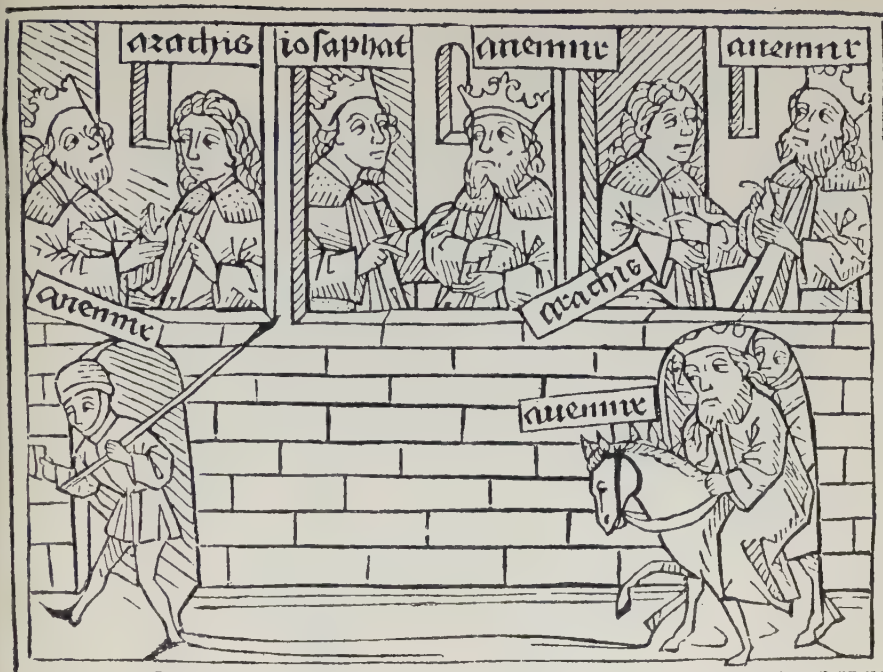 arachis
iosaphat
auennir
auennir
auennir
arachis
auennir